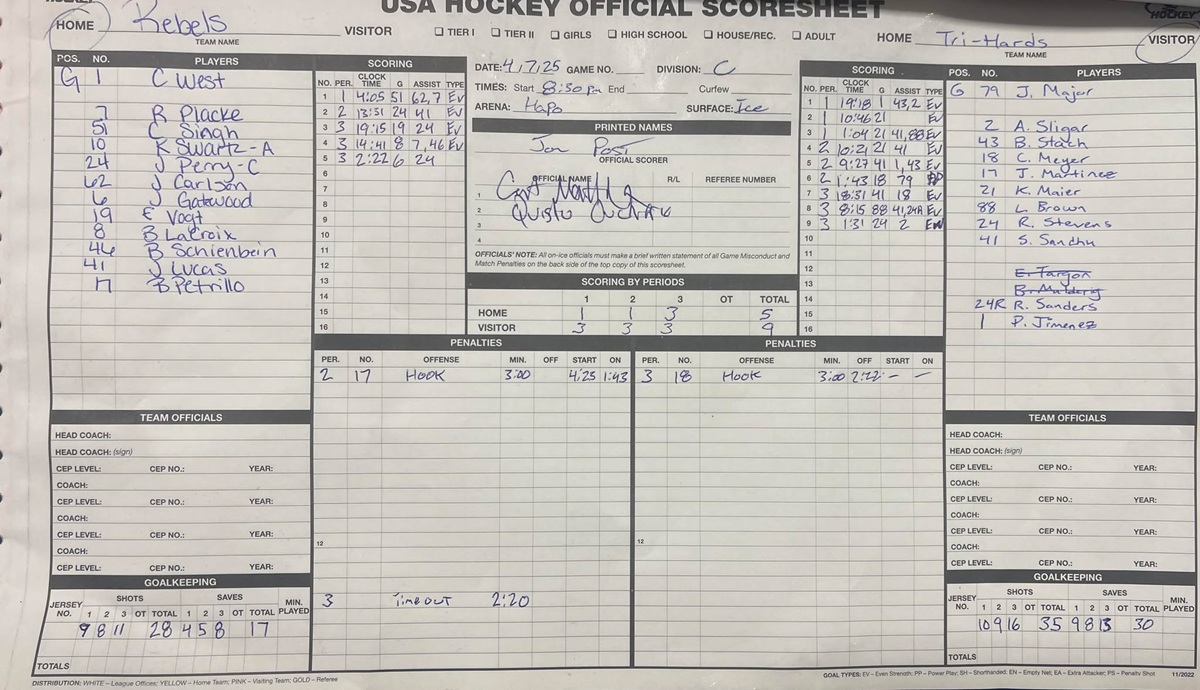 USA HOCKEY OFFICIAL SCORESHEET
HOME Rebels VISITOR
TEAM NAME
☐ TIER I ☐ TIER II ☐ GIRLS ☐ HIGH SCHOOL ☐ HOUSE/REC. ☐ ADULT
HOME Tri-Hards VISITOR
TEAM NAME
POS. NO. PLAYERS
G 1 C West
7 R Placke
51 C Singh
10 K Swartz-A
24 J Perry-C
62 J Carlson
6 J Gatewood
19 E Vogt
8 B LaCroix
46 B Schienbein
41 J Lucas
17 B Petrillo
SCORING
NO. PER. CLOCK TIME G ASSIST TYPE
1 1 4:05 51 62,7 EV
2 2 13:51 24 41 EV
3 3 19:15 19 24 EV
4 3 14:41 8 7,46 EV
5 3 2:22 6 24
6
7
8
9
10
11
12
13
14
15
16
DATE: 4/7/25 GAME NO. DIVISION: C
TIMES: Start 8:50 pm End Curfew
ARENA: Hapo SURFACE: Ice
PRINTED NAMES
Jon Post
OFFICIAL SCORER
OFFICIAL NAME R/L REFEREE NUMBER
1
2
3
4
OFFICIALS' NOTE: All on-ice officials must make a brief written statement of all Game Misconduct and
Match Penalties on the back side of the top copy of this scoresheet.
SCORING BY PERIODS
1 2 3 OT TOTAL
HOME 1 1 3 5
VISITOR 3 3 3 9
SCORING
NO. PER. CLOCK TIME G ASSIST TYPE
1 1 19:18 1 43,2 EV
2 1 10:46 21 EV
3 1 1:04 21 41,88 EV
4 2 10:21 21 41 EV
5 2 9:27 41 1,43 EV
6 2 1:43 18 79 PP
7 3 18:31 41 18 EV
8 3 8:15 88 41,24R EV
9 3 1:31 24 2 EN
10
11
12
13
14
15
16
POS. NO. PLAYERS
G 79 J. Major
2 A. Sligar
43 B. Stach
18 C. Meyer
17 J. Martinez
21 K. Maier
88 L. Brown
24 R. Stevens
41 S. Sandhu
E. Fargon
24R R. Sanders
1 P. Jimenez
PENALTIES
PER. NO. OFFENSE MIN. OFF START ON
2 17 HOOK 3:00 4:25 1:43
12
3 Timeout 2:20
PENALTIES
PER. NO. OFFENSE MIN. OFF START ON
3 18 HOOK 3:00 2:22 - -
12
TEAM OFFICIALS
HEAD COACH:
HEAD COACH: (sign)
CEP LEVEL: CEP NO.: YEAR:
COACH:
CEP LEVEL: CEP NO.: YEAR:
COACH:
CEP LEVEL: CEP NO.: YEAR:
COACH:
CEP LEVEL: CEP NO.: YEAR:
GOALKEEPING
SHOTS SAVES
JERSEY NO. 1 2 3 OT TOTAL 1 2 3 OT TOTAL MIN. PLAYED
9 8 11 28 4 5 8 17
TOTALS
TEAM OFFICIALS
HEAD COACH:
HEAD COACH: (sign)
CEP LEVEL: CEP NO.: YEAR:
COACH:
CEP LEVEL: CEP NO.: YEAR:
COACH:
CEP LEVEL: CEP NO.: YEAR:
COACH:
CEP LEVEL: CEP NO.: YEAR:
GOALKEEPING
SHOTS SAVES
JERSEY NO. 1 2 3 OT TOTAL 1 2 3 OT TOTAL MIN. PLAYED
10 9 16 35 9 8 13 30
TOTALS
DISTRIBUTION: WHITE – League Offices; YELLOW – Home Team; PINK – Visiting Team; GOLD – Referee
GOAL TYPES: EV – Even Strength; PP – Power Play; SH – Shorthanded; EN – Empty Net; EA – Extra Attacker; PS – Penalty Shot 11/2022